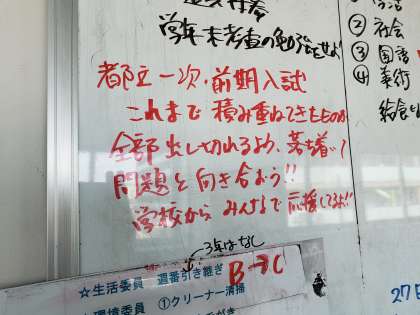 学年末考査の勉強をせよ!
② 社会
③ 国語
④ 美術
給食
都立一次・前期入試
これまで積み重ねてきたものを
全部出し切れるよう、落ち着いて
問題と向き合おう!!
学校からみんなで応援してるよ!!
3年はなし
☆生活委員 週番引き継ぎ B→C
環境委員 ①クリーナー清掃
27日